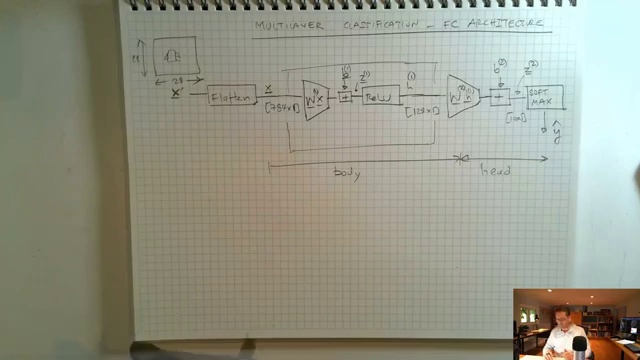 MULTILAYER CLASSIFICATION - FC ARCHITECTURE
28
28
X'
Flatten
x
[784x1]
W(1) x
b(1)
+
z(1)
ReLU
h(1)
[128x1]
W(2) h(1)
b(2)
+
z(2)
SOFT
MAX
ŷ
body
head